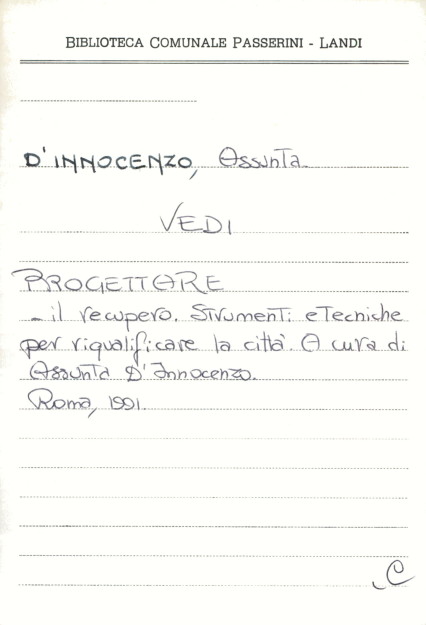 BIBLIOTECA COMUNALE PASSERINI - LANDI
D'INNOCENZO, Assunta
VEDI
PROGETTARE
- il recupero. Strumenti e Tecniche
per riqualificare la città. A cura di
Assunta D'Innocenzo.
Roma, 1991.
C